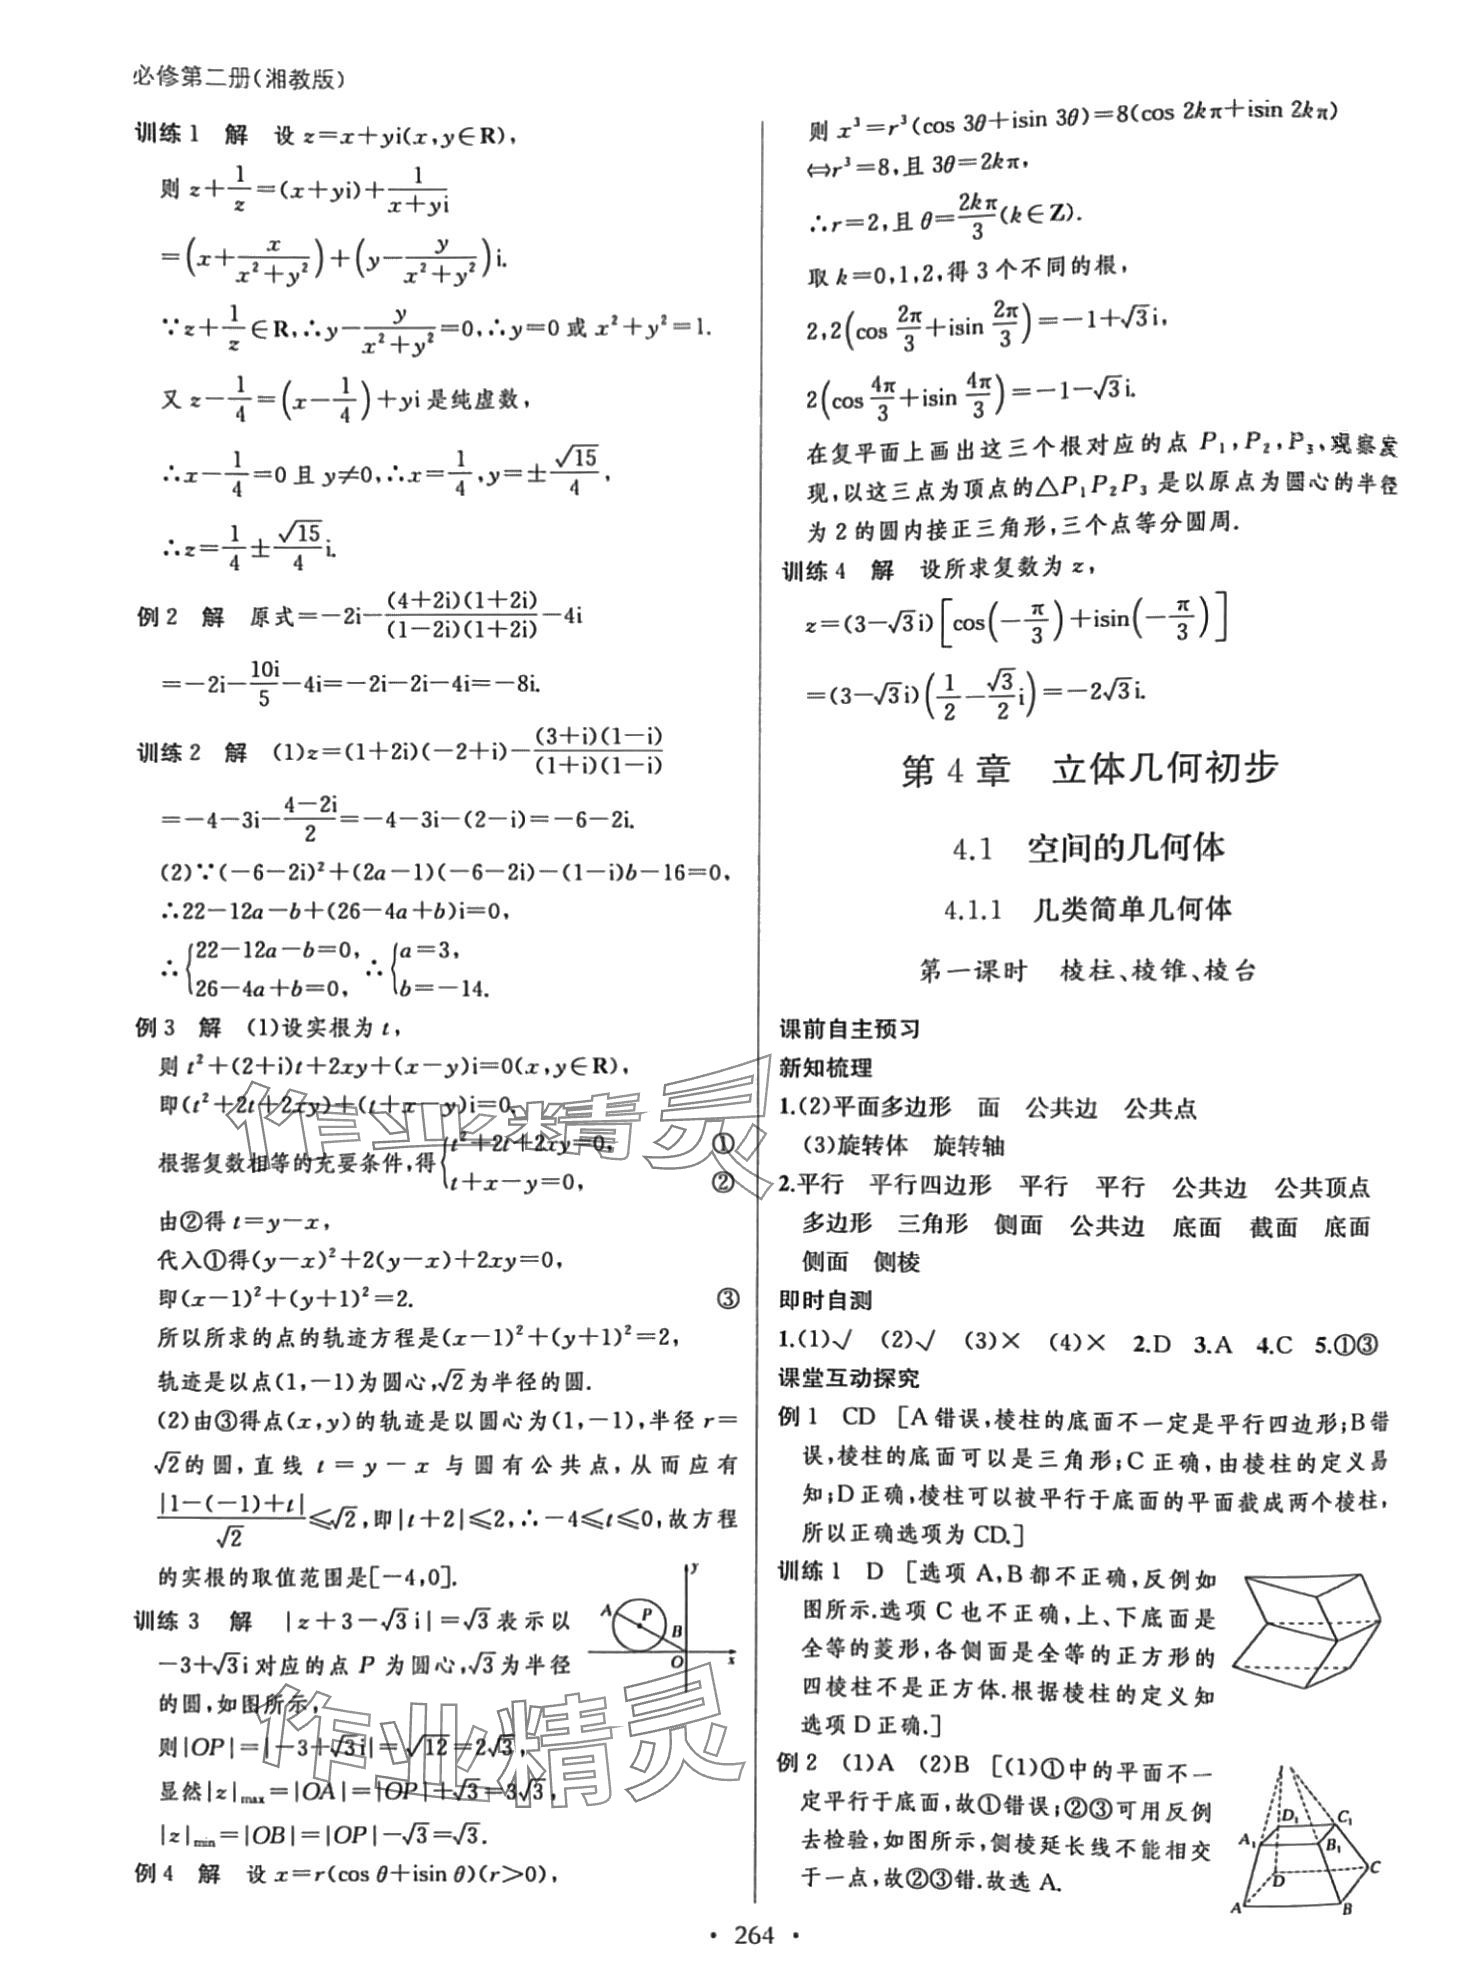 必修第二册(湘教版)
训练1 解 设 z=x+yi(x,y∈R),
则 z+1/z=(x+yi)+1/(x+yi)
=(x+x/(x²+y²))+(y-y/(x²+y²))i.
∵z+1/z∈R,∴y-y/(x²+y²)=0,∴y=0 或 x²+y²=1.
又 z-1/4=(x-1/4)+yi 是纯虚数,
∴x-1/4=0 且 y≠0,∴x=1/4,y=±√15/4,
∴z=1/4±√15/4 i.
例2 解 原式=-2i-(4+2i)(1+2i)/(1-2i)(1+2i)-4i
=-2i-10i/5-4i=-2i-2i-4i=-8i.
训练2 解 (1)z=(1+2i)(-2+i)-(3+i)(1-i)/(1+i)(1-i)
=-4-3i-(4-2i)/2=-4-3i-(2-i)=-6-2i.
(2)∵(-6-2i)²+(2a-1)(-6-2i)-(1-i)b-16=0,
∴22-12a-b+(26-4a+b)i=0,
∴{22-12a-b=0, 26-4a+b=0, ∴{a=3, b=-14.
例3 解 (1)设实根为 t,
则 t²+(2+i)t+2xy+(x-y)i=0(x,y∈R),
即(t²+2t+2xy)+(t+x-y)i=0,
根据复数相等的充要条件,得{t²+2t+2xy=0, ① t+x-y=0, ②
由②得 t=y-x,
代入①得(y-x)²+2(y-x)+2xy=0,
即(x-1)²+(y+1)²=2. ③
所以所求的点的轨迹方程是(x-1)²+(y+1)²=2,
轨迹是以点(1,-1)为圆心,√2为半径的圆.
(2)由③得点(x,y)的轨迹是以圆心为(1,-1),半径 r=
√2的圆,直线 t=y-x 与圆有公共点,从而应有
|1-(-1)+t|/√2≤√2,即|t+2|≤2,∴-4≤t≤0,故方程
的实根的取值范围是[-4,0].
训练3 解 |z+3-√3i|=√3表示以
-3+√3i对应的点 P 为圆心,√3为半径
的圆,如图所示,
则|OP|=|-3+√3i|=√12=2√3,
显然|z|max=|OA|=|OP|+√3=3√3,
|z|min=|OB|=|OP|-√3=√3.
y
A
P
B
O
x
例4 解 设 x=r(cos θ+isin θ)(r>0),
则 x³=r³(cos 3θ+isin 3θ)=8(cos 2kπ+isin 2kπ)
⇔r³=8,且 3θ=2kπ,
∴r=2,且 θ=2kπ/3(k∈Z).
取 k=0,1,2,得 3 个不同的根,
2,2(cos 2π/3+isin 2π/3)=-1+√3i,
2(cos 4π/3+isin 4π/3)=-1-√3i.
在复平面上画出这三个根对应的点 P₁,P₂,P₃,观察发
现,以这三点为顶点的△P₁P₂P₃ 是以原点为圆心的半径
为 2 的圆内接正三角形,三个点等分圆周.
训练4 解 设所求复数为 z,
z=(3-√3i)[cos(-π/3)+isin(-π/3)]
=(3-√3i)(1/2-√3/2 i)=-2√3i.
第4章 立体几何初步
4.1 空间的几何体
4.1.1 几类简单几何体
第一课时 棱柱、棱锥、棱台
课前自主预习
新知梳理
1.(2)平面多边形 面 公共边 公共点
(3)旋转体 旋转轴
2.平行 平行四边形 平行 平行 公共边 公共顶点
多边形 三角形 侧面 公共边 底面 截面 底面
侧面 侧棱
即时自测
1.(1)√ (2)√ (3)× (4)× 2.D 3.A 4.C 5.①③
课堂互动探究
例1 CD [A错误,棱柱的底面不一定是平行四边形;B错
误,棱柱的底面可以是三角形;C正确,由棱柱的定义易
知;D正确,棱柱可以被平行于底面的平面截成两个棱柱,
所以正确选项为CD.]
训练1 D [选项A,B都不正确,反例如
图所示.选项C也不正确,上、下底面是
全等的菱形,各侧面是全等的正方形的
四棱柱不是正方体.根据棱柱的定义知
选项D正确.]
例2 (1)A (2)B [(1)①中的平面不一
定平行于底面,故①错误;②③可用反例
去检验,如图所示,侧棱延长线不能相交
于一点,故②③错.故选A.
D₁
C₁
A₁
B₁
D
C
A
B
· 264 ·
作业精灵
作业精灵